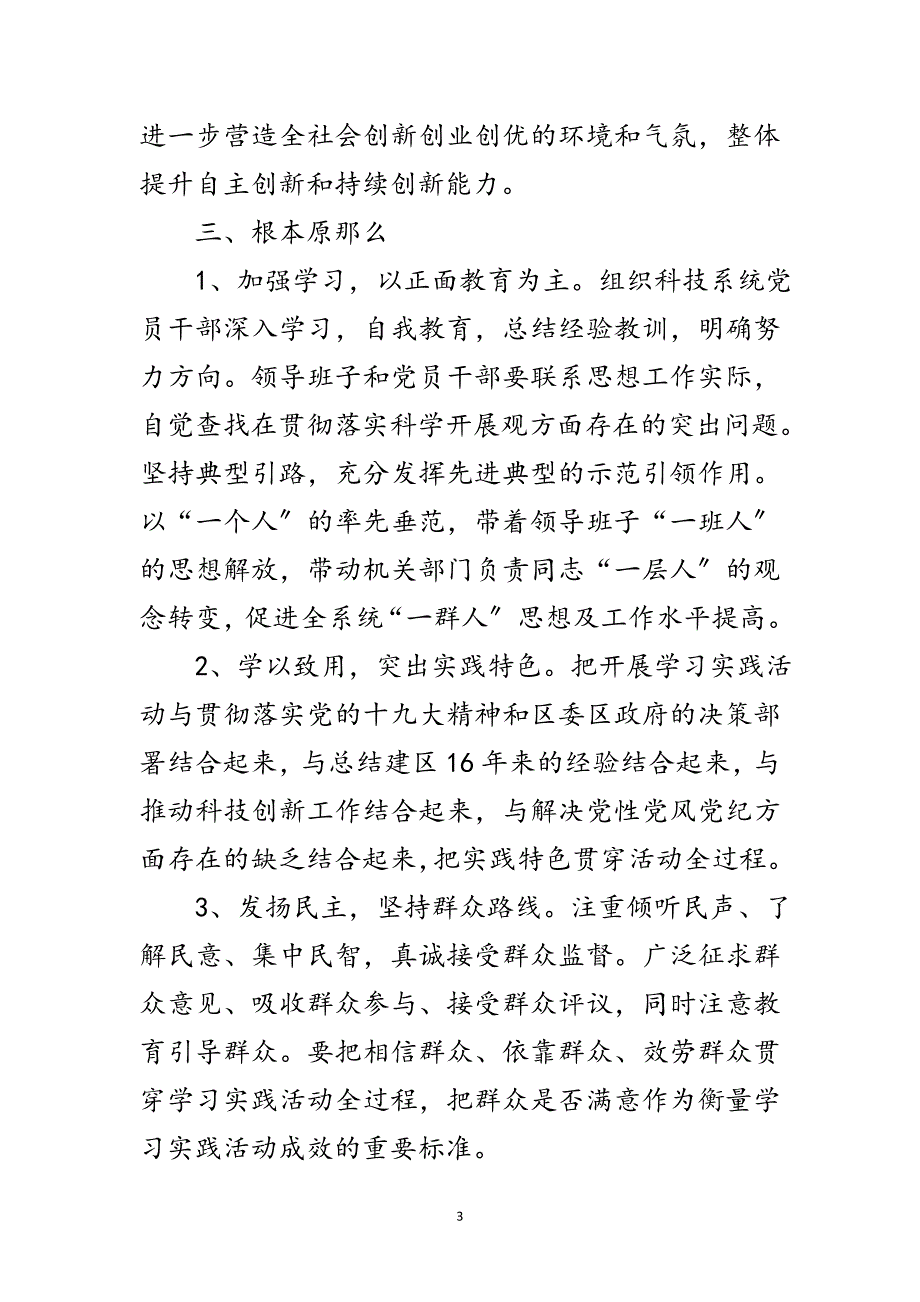 进一步营造全社会创新创业创优的环境和气氛，整体
提升自主创新和持续创新能力。
三、根本原那么
1、加强学习，以正面教育为主。组织科技系统党
员干部深入学习，自我教育，总结经验教训，明确努
力方向。领导班子和党员干部要联系思想工作实际，
自觉查找在贯彻落实科学开展观方面存在的突出问题。
坚持典型引路，充分发挥先进典型的示范引领作用。
以“一个人〞的率先垂范，带着领导班子“一班人〞
的思想解放，带动机关部门负责同志“一层人〞的观
念转变，促进全系统“一群人〞思想及工作水平提高。
2、学以致用，突出实践特色。把开展学习实践活
动与贯彻落实党的十九大精神和区委区政府的决策部
署结合起来，与总结建区16年来的经验结合起来，与
推动科技创新工作结合起来，与解决党性党风党纪方
面存在的缺乏结合起来，把实践特色贯穿活动全过程。
3、发扬民主，坚持群众路线。注重倾听民声、了
解民意、集中民智，真诚接受群众监督。广泛征求群
众意见、吸收群众参与、接受群众评议，同时注意教
育引导群众。要把相信群众、依靠群众、效劳群众贯
穿学习实践活动全过程，把群众是否满意作为衡量学
习实践活动成效的重要标准。
3